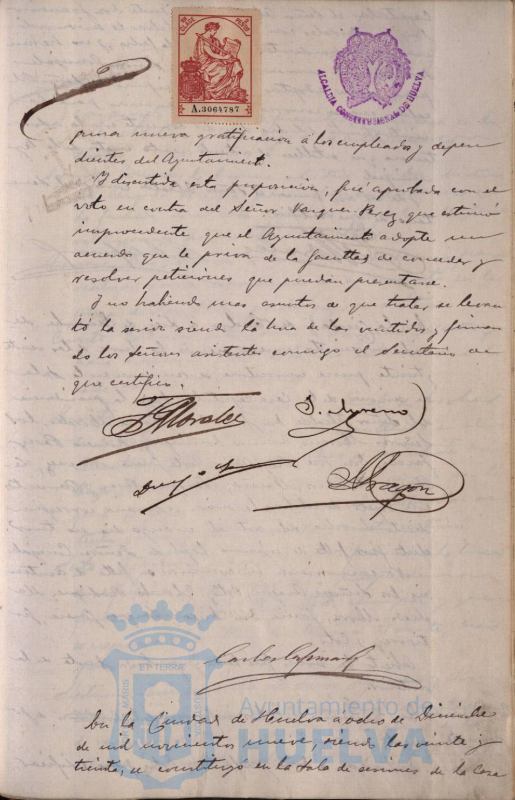 A.3064787
ALCALDIA CONSTITUCIONAL DE HUELVA
nueva gratificacion á los empleados y depen
dientes del Ayuntamiento.
Y discutida esta proposicion, fué aprobada con el
voto en contra del Señor Vazquez Perez que estimó
improcedente que el Ayuntamiento adopte un
acuerdo que le priva de la facultad de conceder y
resolver peticiones que puedan presentarse.
Y no habiendo mas asuntos de que tratar se levan
tó la sesion siendo la hora de las veintidos y firman
do los Señores asistentes conmigo el Secretario de
que certifico.
Morales
J. Moreno
Aragon
Ayuntamiento de
HUELVA
En la Ciudad de Huelva a ocho de Diciembre
de mil novecientos nueve, siendo las veinte y
treinta, se constituyó en la Sala de sesiones de la Casa